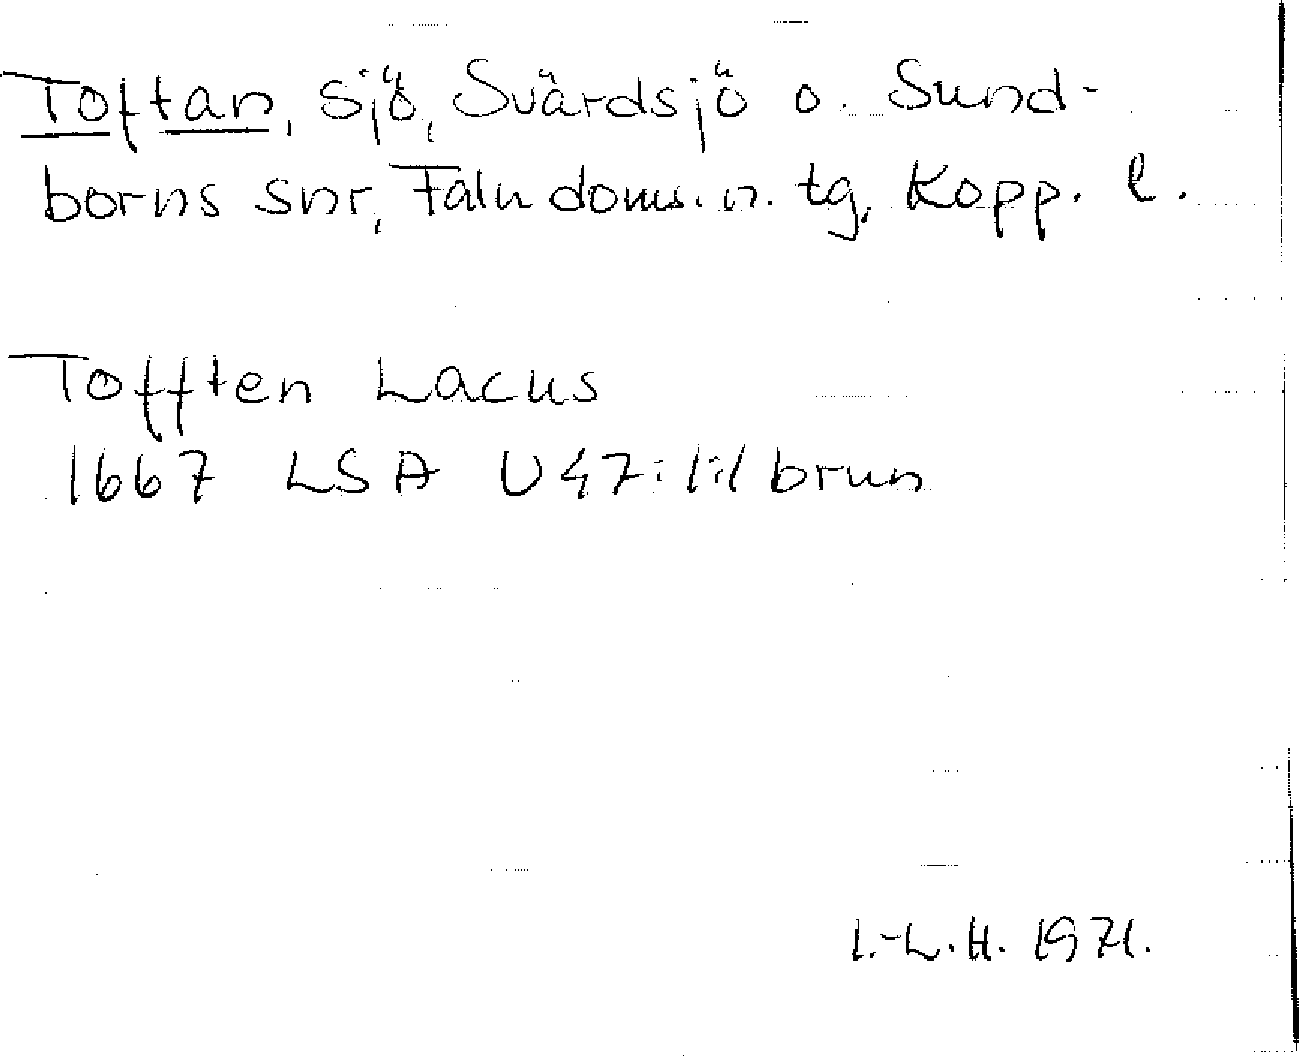 Toftan, sjö, Svärdsjö o. Sund-
borns snr, Falu doms. n. tg, Kopp. l.
Tofften Lacus
1667 LSA U47:1:1 brun
I.-L.H. 1971.